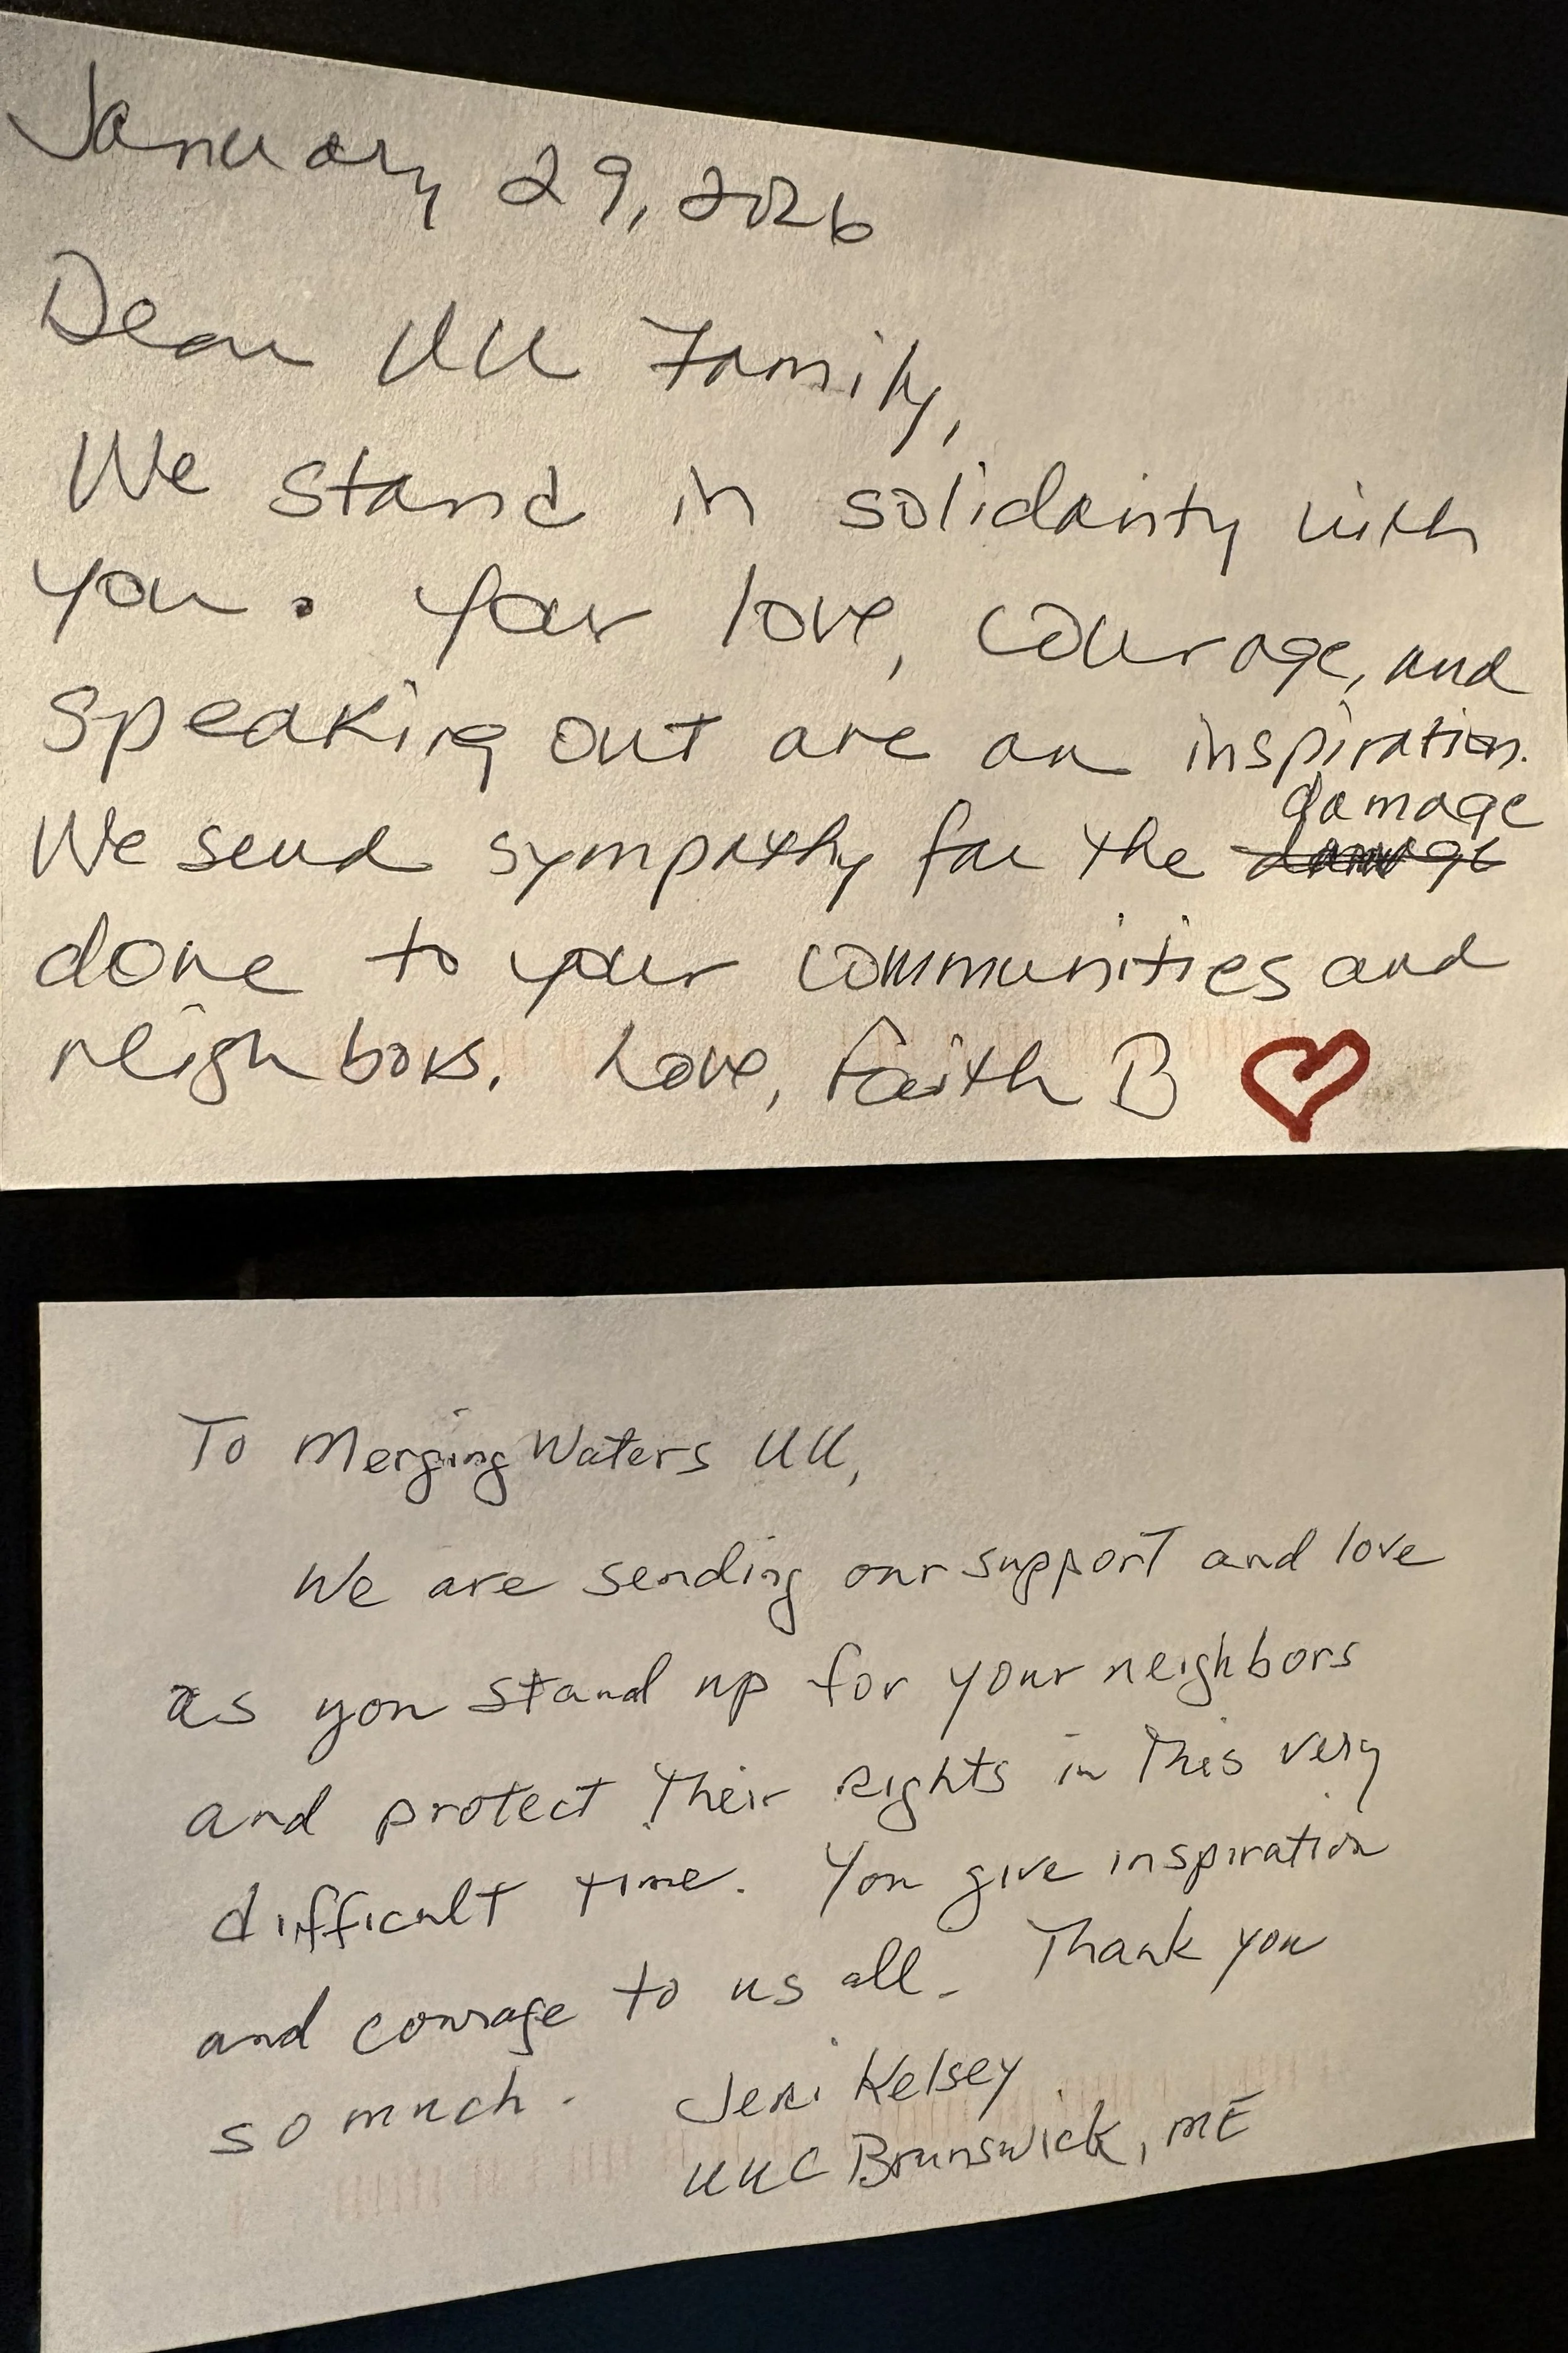 January 29, 2026
Dear UU Family,
We stand in solidarity with
you. Your love, courage, and
speaking out are an inspiration.
We send sympathy for the damage
done to your communities and
neighbors. Love, Faith B
To Merging Waters UU,
We are sending our support and love
as you stand up for your neighbors
and protect their rights in this very
difficult time. You give inspiration
and courage to us all. Thank you
so much. Jeri Kelsey
UUC Brunswick, ME